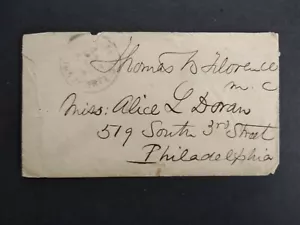 Thomas B Florence
M. C
Miss: Alice L Doran
519 South 3rd Street
Philadelphia